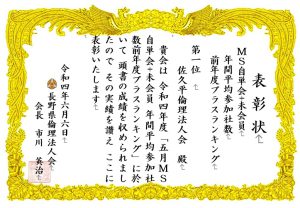 表彰状
MS自単会=未会員
年間平均参加社数
前年度プラスランキング
第一位
佐久平倫理法人会 殿
貴会は 令和四年度「五月MS
自単会=未会員 年間平均参加社
数前年度プラスランキング」に於
いて 頭書の成績を収められまし
たので その実績を讃え ここに
表彰いたします
令和四年六月六日
長野県倫理法人会
会長 市川 英治